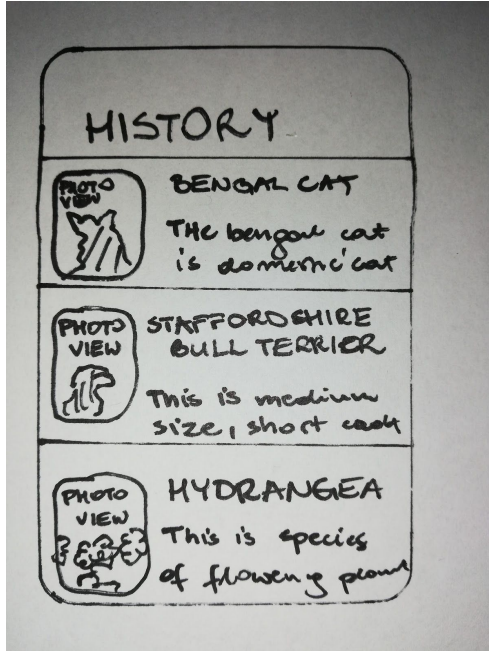 HISTORY
PHOTO
VIEW
BENGAL CAT
THE bengal cat
is domestic cat
PHOTO
VIEW
STAFFORDSHIRE
BULL TERRIER
This is medium
size, short
PHOTO
VIEW
HYDRANGEA
This is species
of flowering